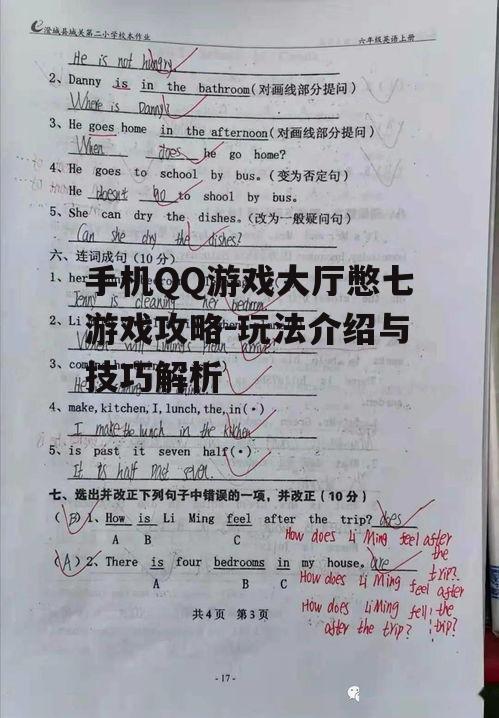 澄城县城关第二小学校本作业 六年级英语上册
He is not hungry
2、Danny is in the bathroom(对画线部分提问)
Where is Danny?
3、He goes home in the afternoon(对画线部分提问)
When does he go home?
4、He goes to school by bus.(变为否定句)
He doesn't go to shool by bus.
5、She can dry the dishes.(改为一般疑问句)
Can she dry the dishes?
六、连词成句(10分)
手机QQ游戏大厅憋七
游戏攻略-玩法介绍与
技巧解析
1、her
Jenny is cleaning her bedroom
2、Li
3、com
4、make,kitchen,I,lunch,the,in(·)
I make the lunch in the kitchen
5、is past it seven half(·)
It is half past seven.
七、选出并改正下列句子中错误的一项,并改正(10分)
(B)1、How is Li Ming feel after the trip? does
A B C
How does Li Ming feel after the trip?
(A)2、There is four bedrooms in my house. are
A B C
How does Li Ming feel after the trip?
How does Li Ming fell after the trip?
共4页 第3页
- 17 -